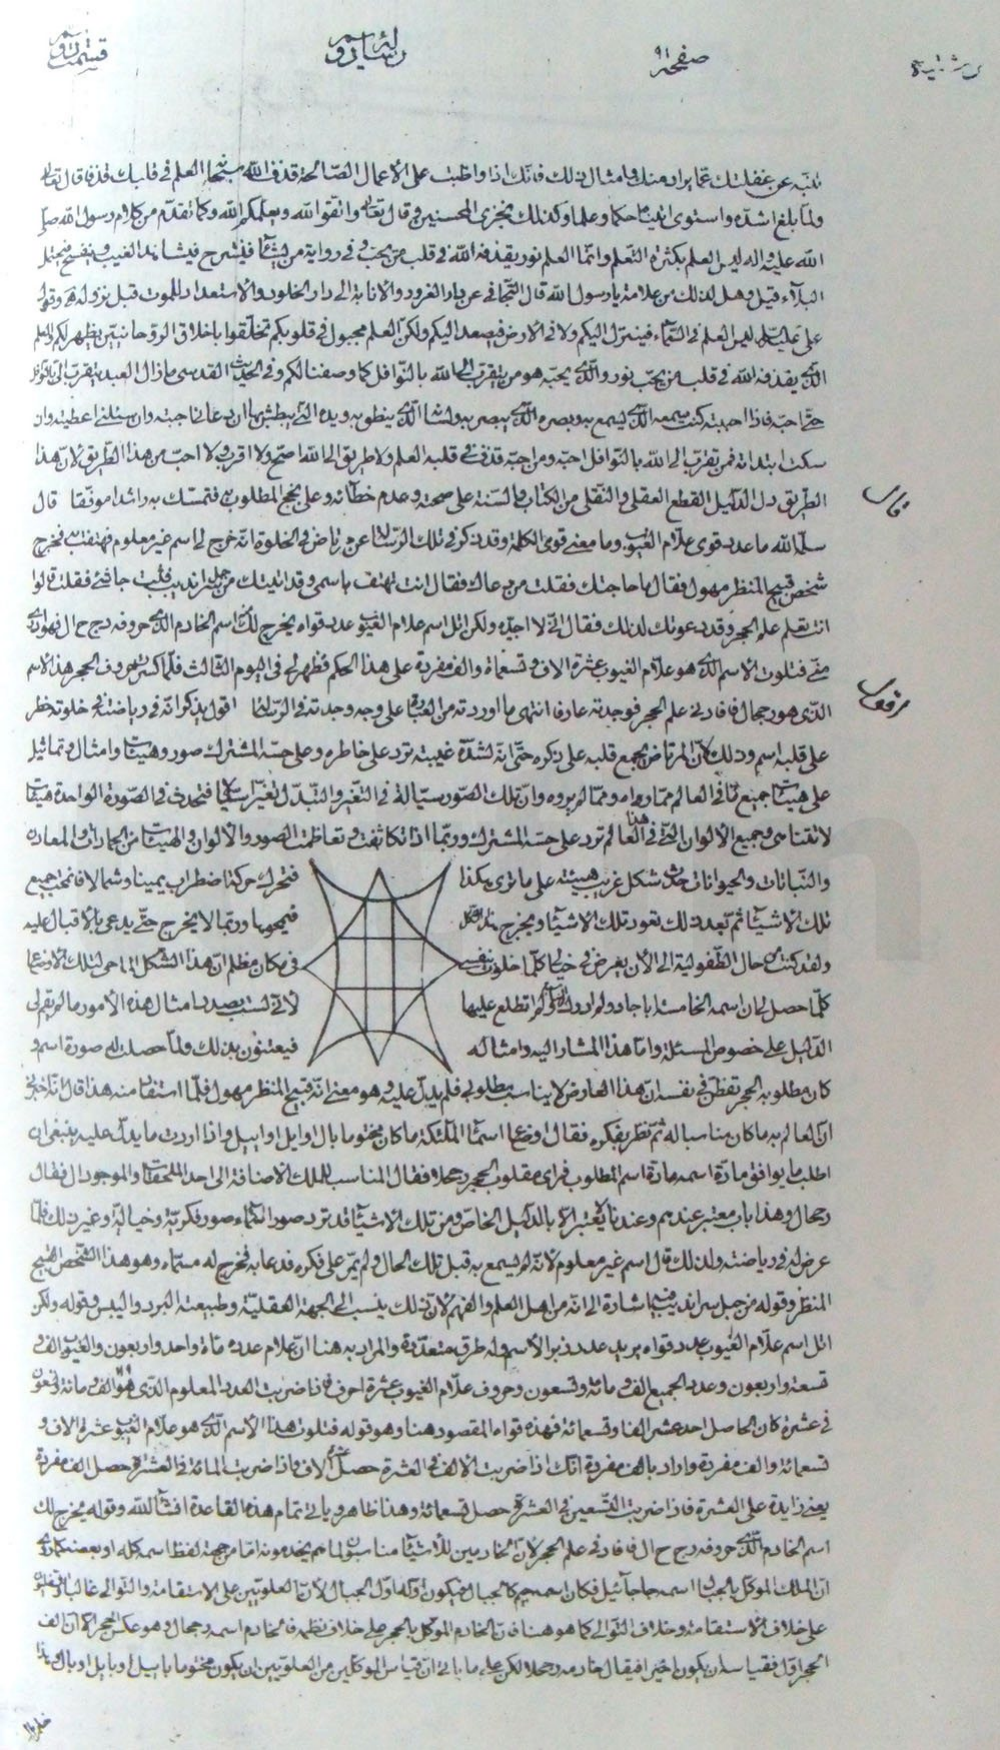 قسمت دوم
رساله سی و سوم
صفحه ۹۱
تنبّه عن غفلتك عمّا يراد منك و امثال ذلك فانّك اذا واظبت على الاعمال الصّالحة قذف الله سبحانه العلم في قلبك قذفا قال تعالى
ولمّا بلغ اشدّه واستوى اتيناه حكما وعلما وكذلك نجزى المحسنين و قال تعالى واتقوا الله ويعلّمكم الله وكما تقدّم من كلام رسول الله صلّى
الله عليه واله ليس العلم بكثرة التّعلم وانّما العلم نور يقذفه الله في قلب من يحبّ وفي رواية من يشاء فينشرح فيشاهد الغيب وينفسح فيحتمل
البلاء قيل وهل لذلك من علامة يا رسول الله قال التّجافى عن دار الغرور والانابة الى دار الخلود والاستعداد للموت قبل نزوله وقول
علي عليه السلام ليس العلم في السّماء فينزل اليكم ولا في الارض فيصعد اليكم ولكن العلم مجبول في قلوبكم تخلّقوا باخلاق الروحانيين يظهر لكم والعلم
الّذي يقذفه الله في قلب من يحبّ نور والّذي يحبّه هو من يتقرّب الى الله بالنّوافل كما وصفنا لكم وفي الحديث القدسى ما زال العبد يتقرب الىّ بالنّوافل
حتّى احبّه فاذا احببته كنت سمعه الّذي يسمع به وبصره الّذي يبصر به ولسانه الّذي ينطق به ويده الّتي يبطش بها ان دعاني اجبته وان سئلني اعطيته وان
سكت ابتدأته فمن تقرب الى الله بالنوافل احبّه ومن احبّه قذف في قلبه العلم ولا طريق الى الله اصحّ ولا اقرب ولا احبّ من هذا الطّريق لانّ هذا
الطّريق دل الدّليل القطع العقلي والنّقلي من الكتاب والسّنة على صحته وعدم خطائه وعلى نجح المطلوب به فتمسّك به راشدا موفّقا قال
سلّمه الله ما عدد قوى علّام الغيوب وما معنى قوى الكلمة وقد ذكر في تلك الرّسالة عن مرتاض في الخلوة انّه خرج لي اسم غير معلوم فهتفت به فخرج
شخص قبيح المنظر مهول فقال ما حاجتك فقلت من دعاك فقال انت تهتف باسمي وقد اتيتك من جبل سرانديب فقلت حاجتي فقلت قالوا
انت تعلم علم الحجر وقد دعوتك لذلك فقال انّى لا اجيده ولكن اتل اسم علام الغيوب عدد قواه يخرج لك اسم الخادم الّذي حروفه د ج ح ا ل فهو ادرى
منّي فتلوت الاسم الّذي هو علّام الغيوب عشرة الاف وتسعمائة والف مفردة على هذا الحكم فظهر لي في اليوم الثالث فلمّا كسرت حروف الحجر هذا الاسم
الّذي هو رجحال فافادني علم الحجر فوجدته عارفا انتهى ما اوردته من العبارة على وجه وجدته في الرّسالة اقول يذكر انّه في رياضته في خلوته خطر
على قلبه اسم وذلك لانّ المرتاض يجمع قلبه على ذكره حتّى انّه لشدّة غيبته ترد على خاطره وعلى حسّه المشترك صور وهيئات وامثال وتماثيل
على هيئات جميع ما في العالم ممّا رواه وممّا لم يروه وانّ تلك الصّور سيالة في التغيّر والتبدّل تغيّرا سيّالا فتحدث في الصّورة الواحدة هيئات
لا تتناهى وجميع الالوان الّتي في هذا العالم ترد على حسّه المشترك وربّما اذا تكاثفت وتعاظمت الصور والالوان والهيئات من الجمادات والمعادن
والنّباتات والحيوانات حدث شكل غريب هيئته على ما ترى هكذا فتحرّك حركة اضطراب يمينا وشمالا فانمحت جميع
تلك الاشياء ثم بعد ذلك تعود تلك الاشياء ويخرج هذا الشكل فيمحوها وربّما لا يخرج حتّى يدعى بالاقبال عليه
ولقد كنت من حال الطّفولية الى الان يعرض في خيالي كلّما خلوت بنفسي في مكان مظلم انّ هذا الشّكل الماحي لتلك الاوضاع
كلّما حصل لي ان اسمه الخامسة اباجاد ولم ار ولم اتطلع عليها لانّي لست بصدد امثال هذه الامور ما لم يقم لي
الدّليل على خصوص المسئلة وامّا هذا المشار اليه وامثاله فيعتنون بذلك ولمّا حصلت له صورة اسم و
كان مطلوبه الحجر تفطّن في نفسه انّ هذا العارض لا يناسب مطلوبي فلم يدلّ عليه وهو معنى انّه قبيح المنظر مهول فلمّا استفهم منه هذا قال انّه اخبرني
انّ العالم به ما كان مناسبا له ثمّ نظر بفكره فقال اوضاع اسماء الملئكة ما كان مختوما بال او ايل او ابيل واذا اردت ما يدلّ عليه ينبغي ان
اطلب ما يوافق مادّة اسمه مادة اسم المطلوب فرأى مقلوب الحجر رجحلا وفقال المناسب للملك الاضافة الى احد الملحقات والموجود ال فقال
رجحال وهذا باب معتبر عندهم وعندنا لا يعتبر الّا بالدّليل الخاصّ ومن تلك الاشياء قد ترد صور اسماء صور فكريّة وخياليّة وغير ذلك فلمّا
عرض له في رياضته ولذلك قال اسم غير معلوم لانّه لم يسمع به قبل تلك الحال ولم يمرّ على فكره فدعا به فخرج له مسمّاه وهو هذا الشّخص القبيح
المنظر وقوله من جبل سرانديب فيه اشارة الى انّه من اهل العلم والفهم لانّ ذلك ينسب الى الجهة العقليّة وطبيعته البرد واليبس وقوله ولكن
اتل اسم علّام الغيوب عدد قواه يريد عدد زبر الاسم وله طرق متعدّدة والمراد به هنا انّ علام عدده مائة واحد واربعون والغيوب الف و
تسعة واربعون وعدد الجميع الف ومائة وتسعون وحروف علّام الغيوب عشرة احرف فاذا ضربت العدد المعلوم الّذي هو الف ومائة وتسعون
في عشرة كان الحاصل احد عشر الفا وتسعمائة فهذه قواه المقصود هنا وهو قوله فتلوت هذا الاسم الّذي هو علّام الغيوب عشرة الاف و
تسعمائة والف مفردة واراد بالف مفردة انّك اذا ضربت الالف في العشرة حصل عشرة الاف واذا ضربت المائة في العشرة حصل الف مفردة
يعني زايدة على العشرة فاذا ضربت التّسعين في العشرة حصل تسعمائة وهذا ظاهر ويأتى تمام هذه القاعدة انشاء الله وقوله يخرج لك
اسم الخادم الّذي حروفه د ج ح ا ل فافادني علم الحجر لانّ الخادمين للاشياء مناسبون لما هم يخدمونه امّا من جهة لفظ اسمه كله او بعضه كما روى
انّ الملك الموكّل بالجبال اسمه جاجائيل فكان اسمه جيم كالجبال فيكون اوّله اوّل الجبال لانّ العلويّين على الاستقامة والتّوالي غالبا والسّفليّون
على خلاف الاستقامة وخلاف التّوالي كما هو هنا فانّ الخادم الموكّل بالحجر على خلاف نظمه فالخادم اسمه رجحال وهو عكس الحجر الّا انّ الف
الحجر اوّل فقياسه ان يكون اخيرا فيقال خادمه رجحلا لكن على ما يأتى انّ قياس الموكّلين من العلويّين ان يكون مختوما باييل او بايل او بال ولهذا
قال
مرفوع